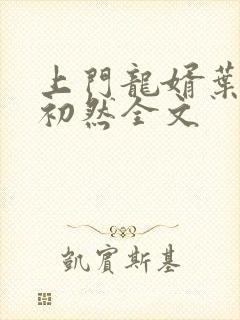 上門龍婿葉
初然全文
凱賓斯基